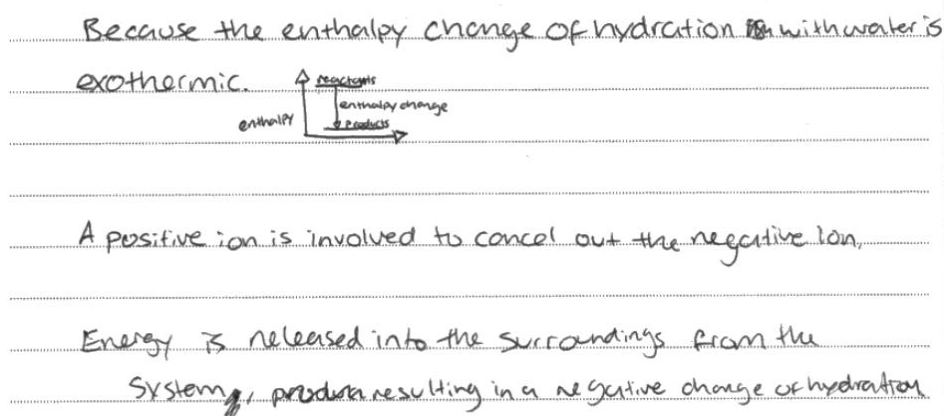 Because the enthalpy change of hydration with water is
exothermic.
reactants
enthalpy change
enthalpy
products
A positive ion is involved to cancel out the negative ion,
Energy is released into the surroundings from the
system, resulting in a negative change of hydration